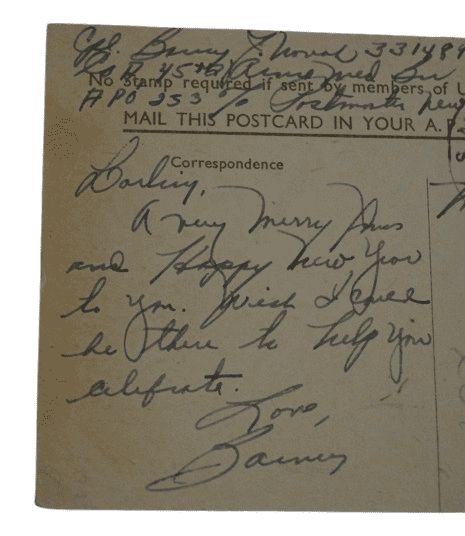 Cpl. Barney J. Novak 331489
Co B 45th Armd Med Bn
No Stamp required if sent by members of U
APO 253 % Postmaster New
MAIL THIS POSTCARD IN YOUR A.P.
Correspondence
Darling,
A very Merry Xmas
and Happy New Year
to you. Wish I could
be there to help you
celebrate.
Love,
Barney